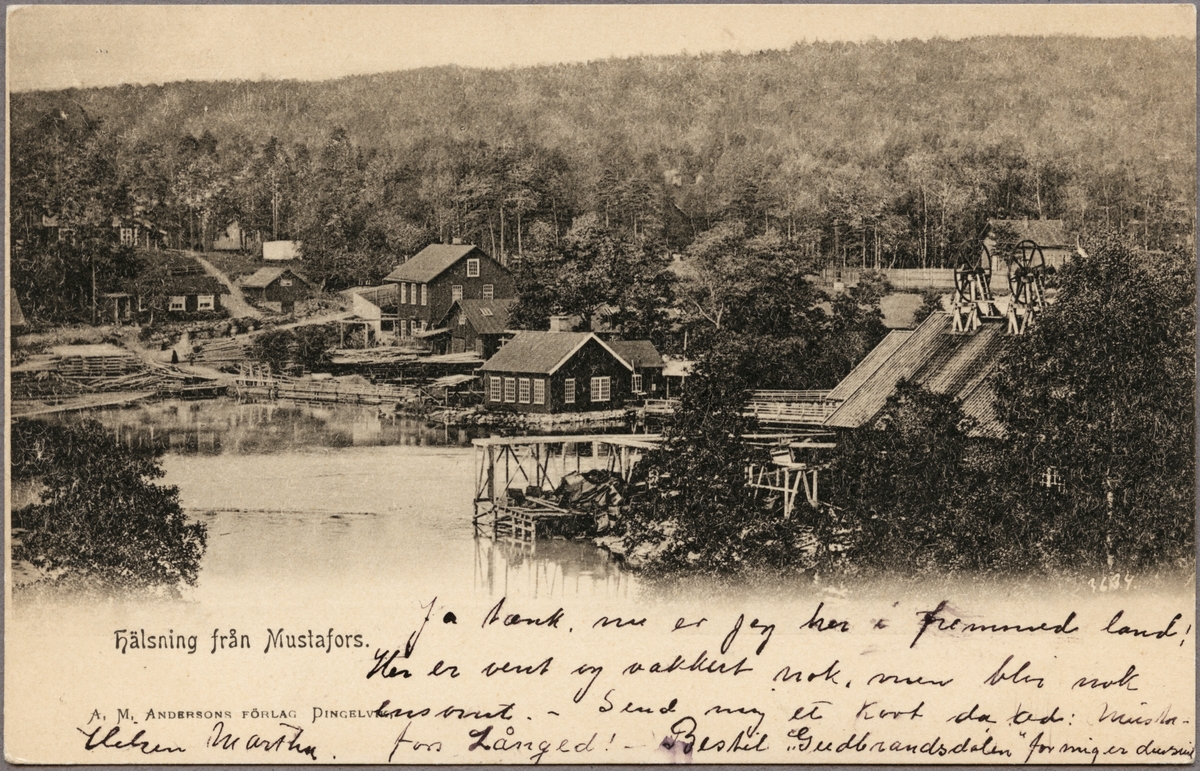 3684
Ja tænk, nu er jeg her i fremmed land!
Hälsning från Mustafors.
Her er vent og vakkert nok, men blir nok
A. M. Andersons förlag Dingelvik
ensomt. – Send mig et kort da ad: Musta-
Hilsen Martha.
fors Långed! – Bestil "Gudbrandsdølen" for mig er du snil